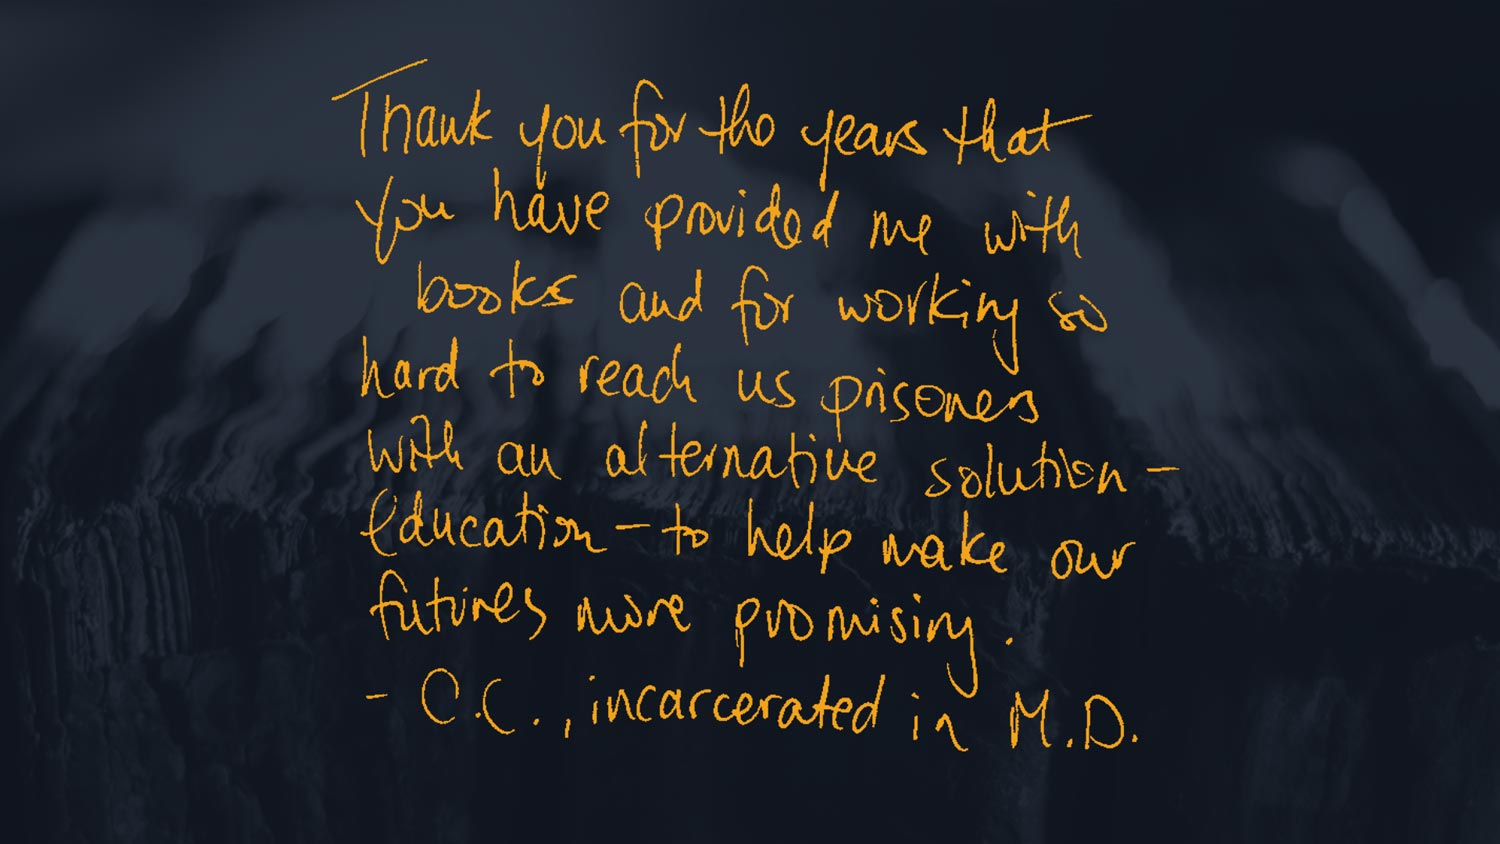 Thank you for the years that
you have provided me with
books and for working so
hard to reach us prisoners
with an alternative solution –
education – to help make our
futures more promising.
- C.C., incarcerated in M.D.